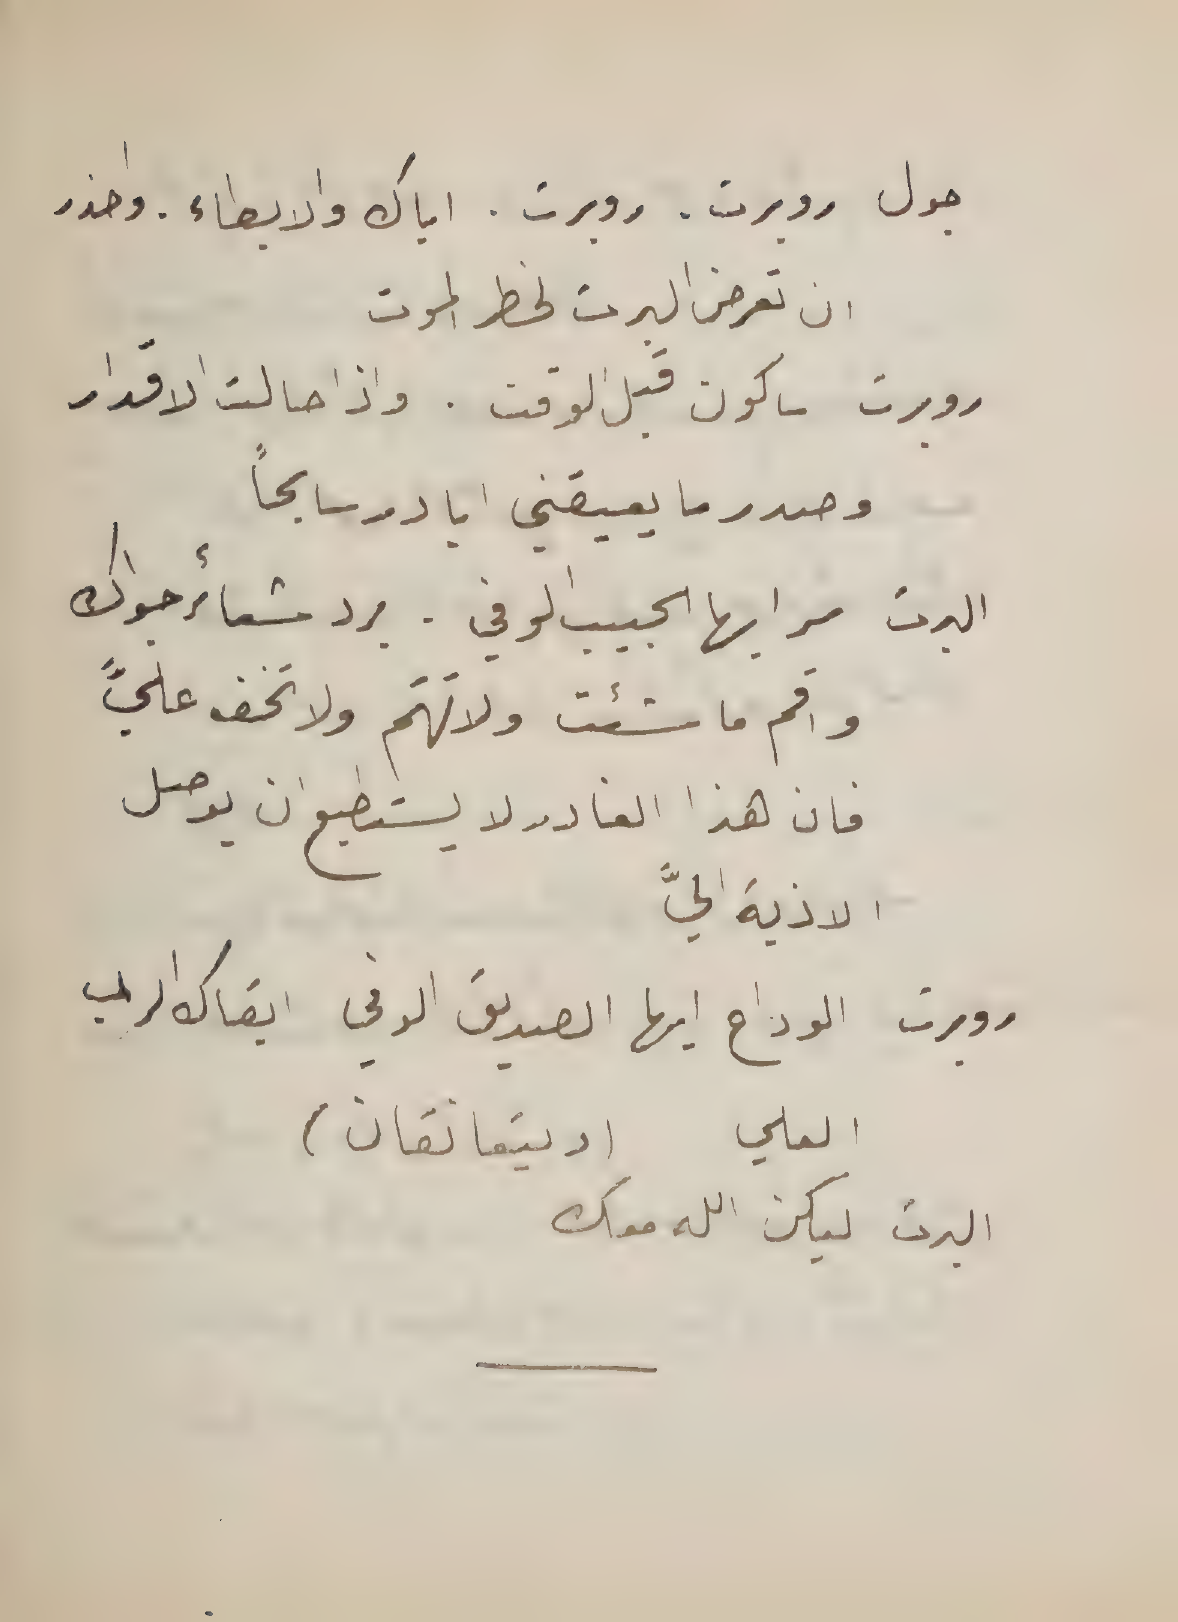 جول روبرت. روبرت. اياك والابطاء. واحذر
ان تعرض البرت لخطر الموت
روبرت ساكون قبل الوقت. واذا حالت الاقدار
وصدر ما يعيقني ابادر سابحاً
البرت سر ايها الحبيب الوفي. برد شعائر جواك
واقم ما شئت ولا تهتم ولا تخف عليَّ
فان هذا الغادر لا يستطيع ان يوصل
الاذية اليَّ
روبرت الوداع ايها الصديق الوفي ابقاك الرب
العلي (ويتعانقان)
البرت ليكن الله معك